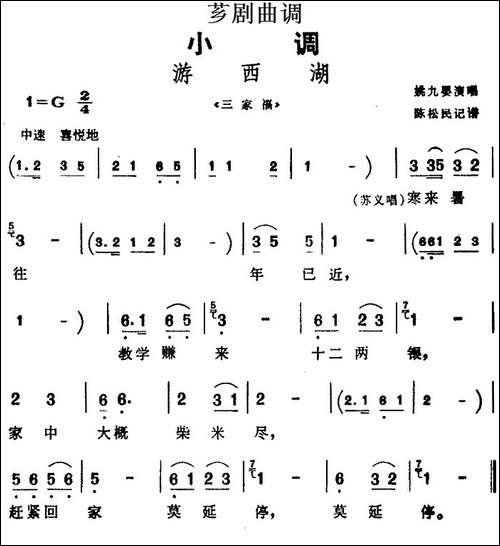 芗剧曲调
小 调
游 西 湖
1=G 2/4 《三家福》 姚九婴演唱
陈松民记谱
中速 喜悦地
(1.2 3 5 | 2 1 6 5 | 1 1 2 1 | 1 - ) | 3 35 3 2 |
(苏义唱)寒来 暑
5 3 - | (3.2 1 2 | 3 - ) | 3 5 5 | 1 - | (661 2 3 |
往 年 已 近,
1 - ) | 6.1 6 5 | 5 3 - | 6 1 2 3 | 7 1 - |
教学 赚 来 十二 两 银,
2 3 | 6 6. | 2 3 1 | 2 - | (2.1 6 1 | 2 - ) |
家 中 大概 柴 米 尽,
5 6 5 6 | 5 - | 6 1 2 3 | 7 1 - | 6 3 2 | 7 1 - |
赶紧回 家 莫 延 停, 莫 延 停。